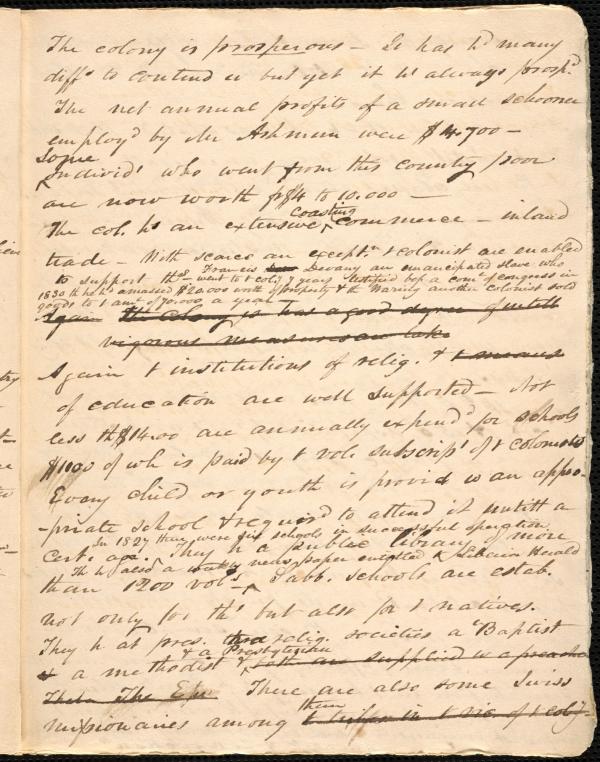 The colony is prosperous – It has hd many
diffs to contend w but yet it hs always prospd.
The net annual profits of a small schooner
employd by Mr Ashmun were $4.700 –
Some
Individs who went from this country poor
are now worth fr $4 to 10.000 –
coasting
The col. hs an extensive commerce – inland
trade – With scarce an exceptn t colonist are enabled
to support ths. Francis Devany an emancipated slave who
went to t coly 7 years testified bef a come of congress in
1830 th he hs amassed $20.000 worth of property & th Waring another colonist sold
goods to t amt of 70.000 a year
Again the colony is has a good degree of until
vigorous measures on take
Again t institutions of relig. & t means
of education are well supported – Not
less th $1400 are annually expendd for schools
$1100 of wh is paid by t vol. subscripn of t colonists
Every child or youth is providd w an appro-
-priate school & requird to attend it untill a
In 1827 there were six schools in successful operation
cert. age. They h a public library of more
Th h also a weekly news paper entitled t Liberia Herald
than 1200 vols – Sabb. schools are estab.
not only for ths but also for t natives.
They h at pres. three relig. societies a Baptist
& a Presbyterian
& a methodist & both are supplied w a preacher
There are also some Swiss
them
missionaries among t tribes in t vic. of t coly.